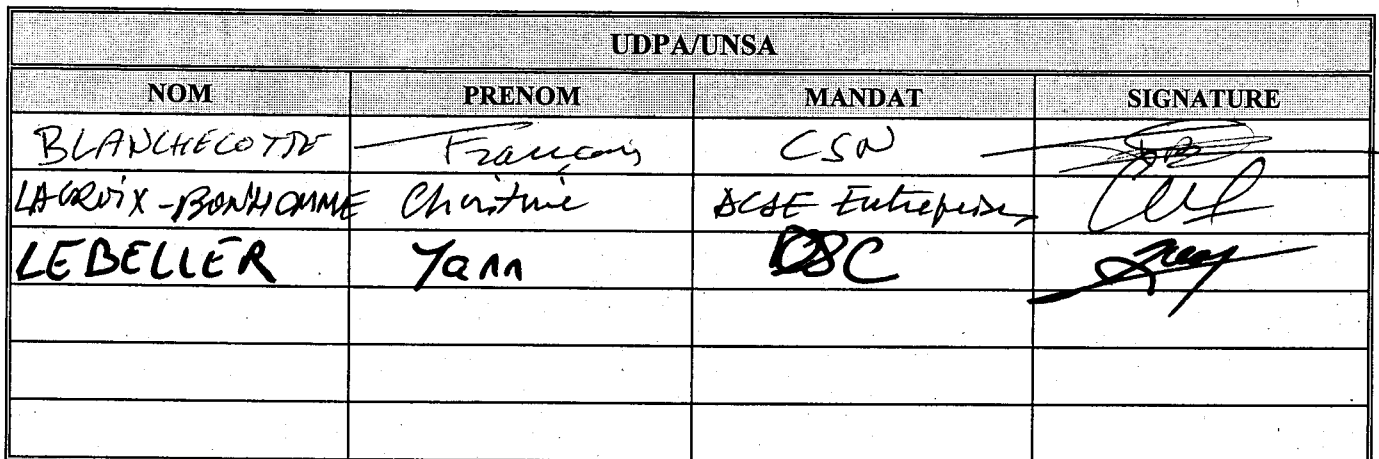 UDPA/UNSA
NOM PRENOM MANDAT SIGNATURE
BLANCHECOTTE François CSN
LACROIX-BONHOMME Christine DCSE Entreprises
LEBELLER Yann DSC